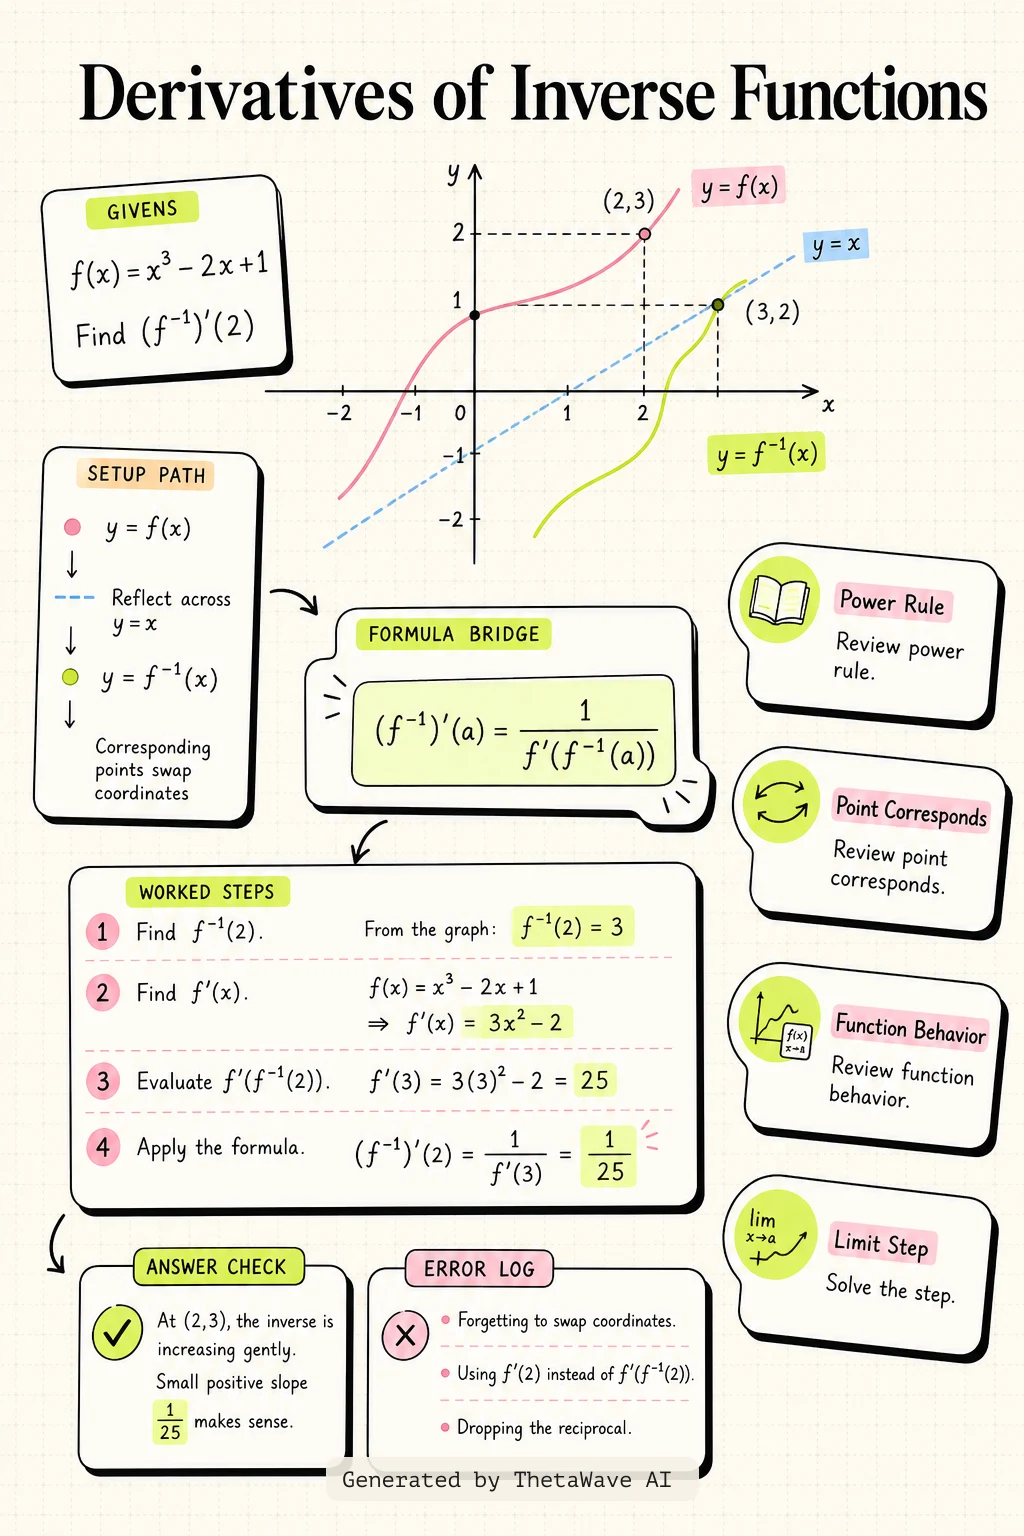 Derivatives of Inverse Functions
GIVENS
f(x) = x³ − 2x + 1
Find (f⁻¹)′(2)
y
(2,3)
y = f(x)
y = x
2
1
(3,2)
−2 −1 0 1 2 x
−1
−2
y = f⁻¹(x)
SETUP PATH
y = f(x)
Reflect across
y = x
y = f⁻¹(x)
Corresponding
points swap
coordinates
FORMULA BRIDGE
(f⁻¹)′(a) = 1 / f′(f⁻¹(a))
Power Rule
Review power
rule.
Point Corresponds
Review point
corresponds.
f(x)
x→a
Function Behavior
Review function
behavior.
lim
x→a
Limit Step
Solve the step.
WORKED STEPS
1 Find f⁻¹(2). From the graph: f⁻¹(2) = 3
2 Find f′(x). f(x) = x³ − 2x + 1
⇒ f′(x) = 3x² − 2
3 Evaluate f′(f⁻¹(2)). f′(3) = 3(3)² − 2 = 25
4 Apply the formula. (f⁻¹)′(2) = 1 / f′(3) = 1 / 25
ANSWER CHECK
At (2,3), the inverse is
increasing gently.
Small positive slope
1 / 25 makes sense.
ERROR LOG
Forgetting to swap coordinates.
Using f′(2) instead of f′(f⁻¹(2)).
Dropping the reciprocal.
Generated by ThetaWave AI